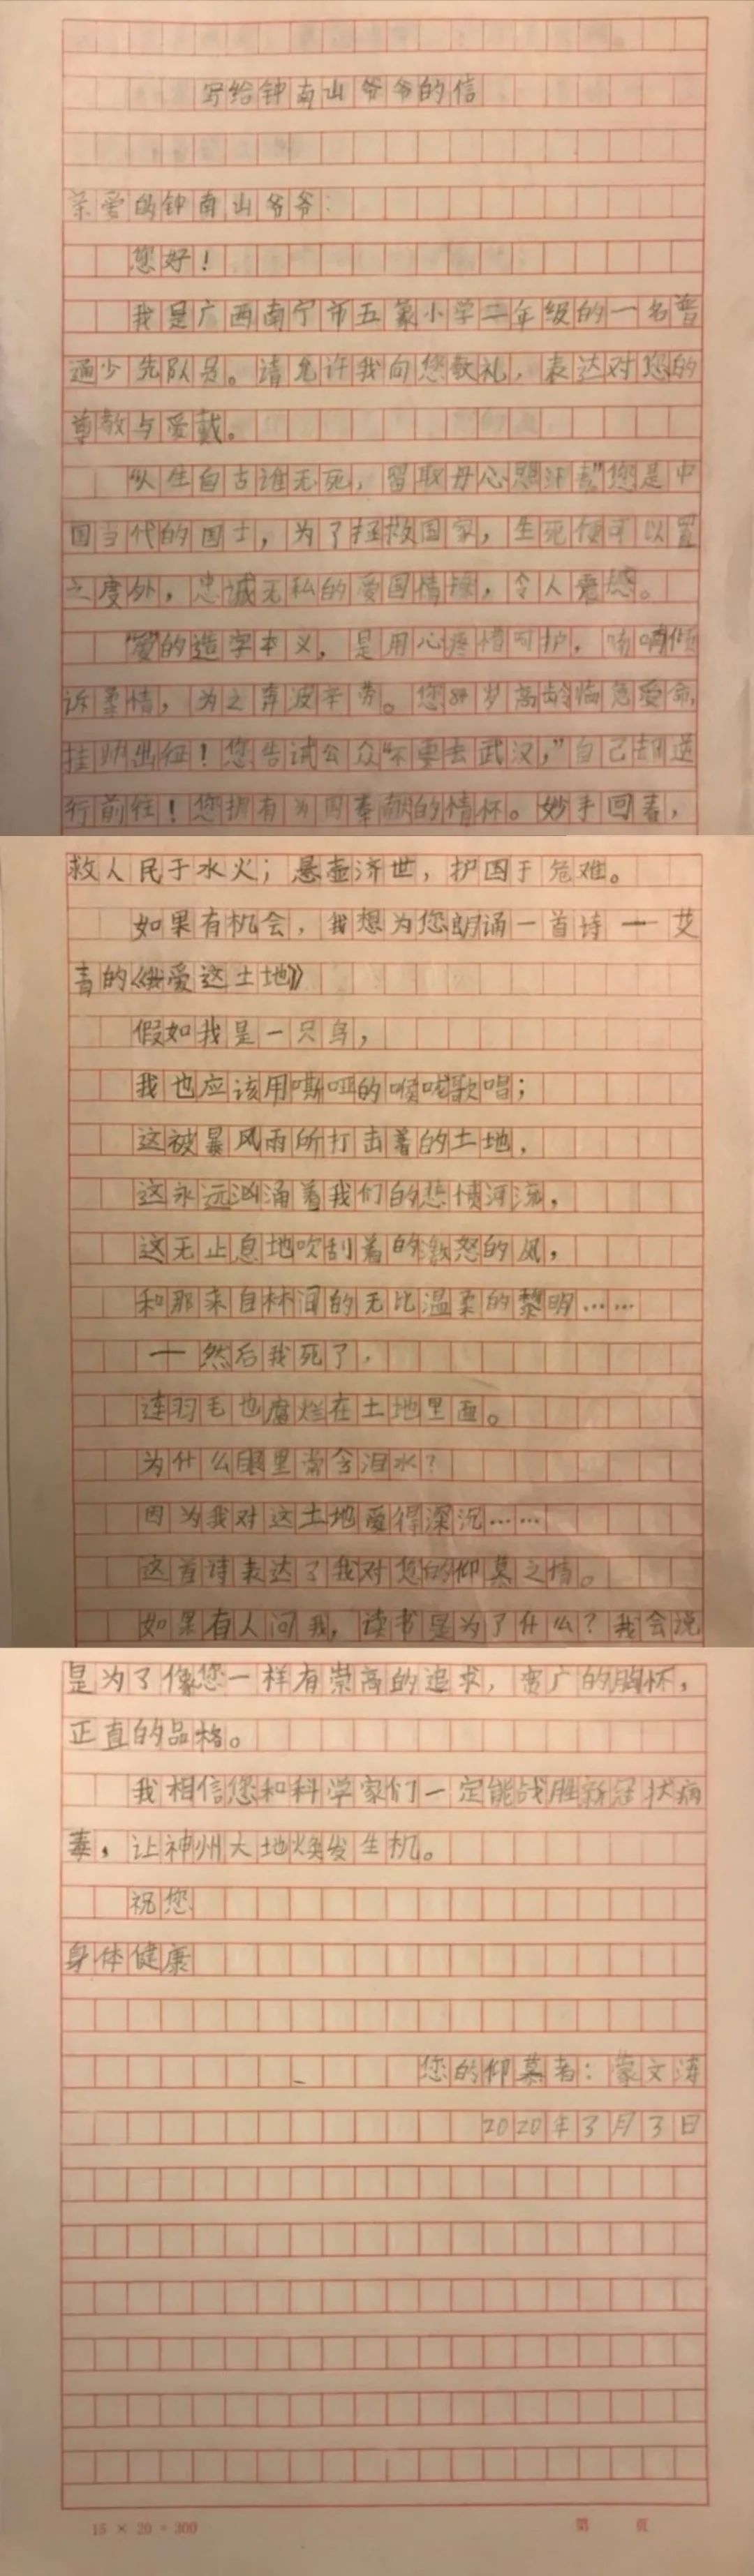 写给钟南山爷爷的信
亲爱的钟南山爷爷：
您好！
我是广西南宁市五象小学二年级的一名普
通少先队员。请允许我向您敬礼，表达对您的
尊敬与爱戴。
“人生自古谁无死，留取丹心照汗青”您是中
国当代的国士，为了拯救国家，生死便可以置
之度外，忠诚无私的爱国情操，令人震撼。
“爱”的造字本义，是用心疼惜呵护，喃喃倾
诉柔情，为之奔波辛劳。您84岁高龄临危受命，
挂帅出征！您告诫公众“不要去武汉，”自己却逆
行前往！您拥有为国奉献的情怀。妙手回春，
救人民于水火；悬壶济世，护国于危难。
如果有机会，我想为您朗诵一首诗——艾
青的《我爱这土地》
假如我是一只鸟，
我也应该用嘶哑的喉咙歌唱；
这被暴风雨所打击着的土地，
这永远汹涌着我们的悲愤河流，
这无止息地吹刮着的激怒的风，
和那来自林间的无比温柔的黎明……
——然后我死了，
连羽毛也腐烂在土地里面。
为什么眼里常含泪水？
因为我对这土地爱得深沉……
这首诗表达了我对您的仰慕之情。
如果有人问我，读书是为了什么？我会说
是为了像您一样有崇高的追求，宽广的胸怀，
正直的品格。
我相信您和科学家们一定能战胜新冠状病
毒，让神州大地焕发生机。
祝您
身体健康
您的仰慕者：蒙文涛
2020年3月3日
15 × 20 = 300
第 頁